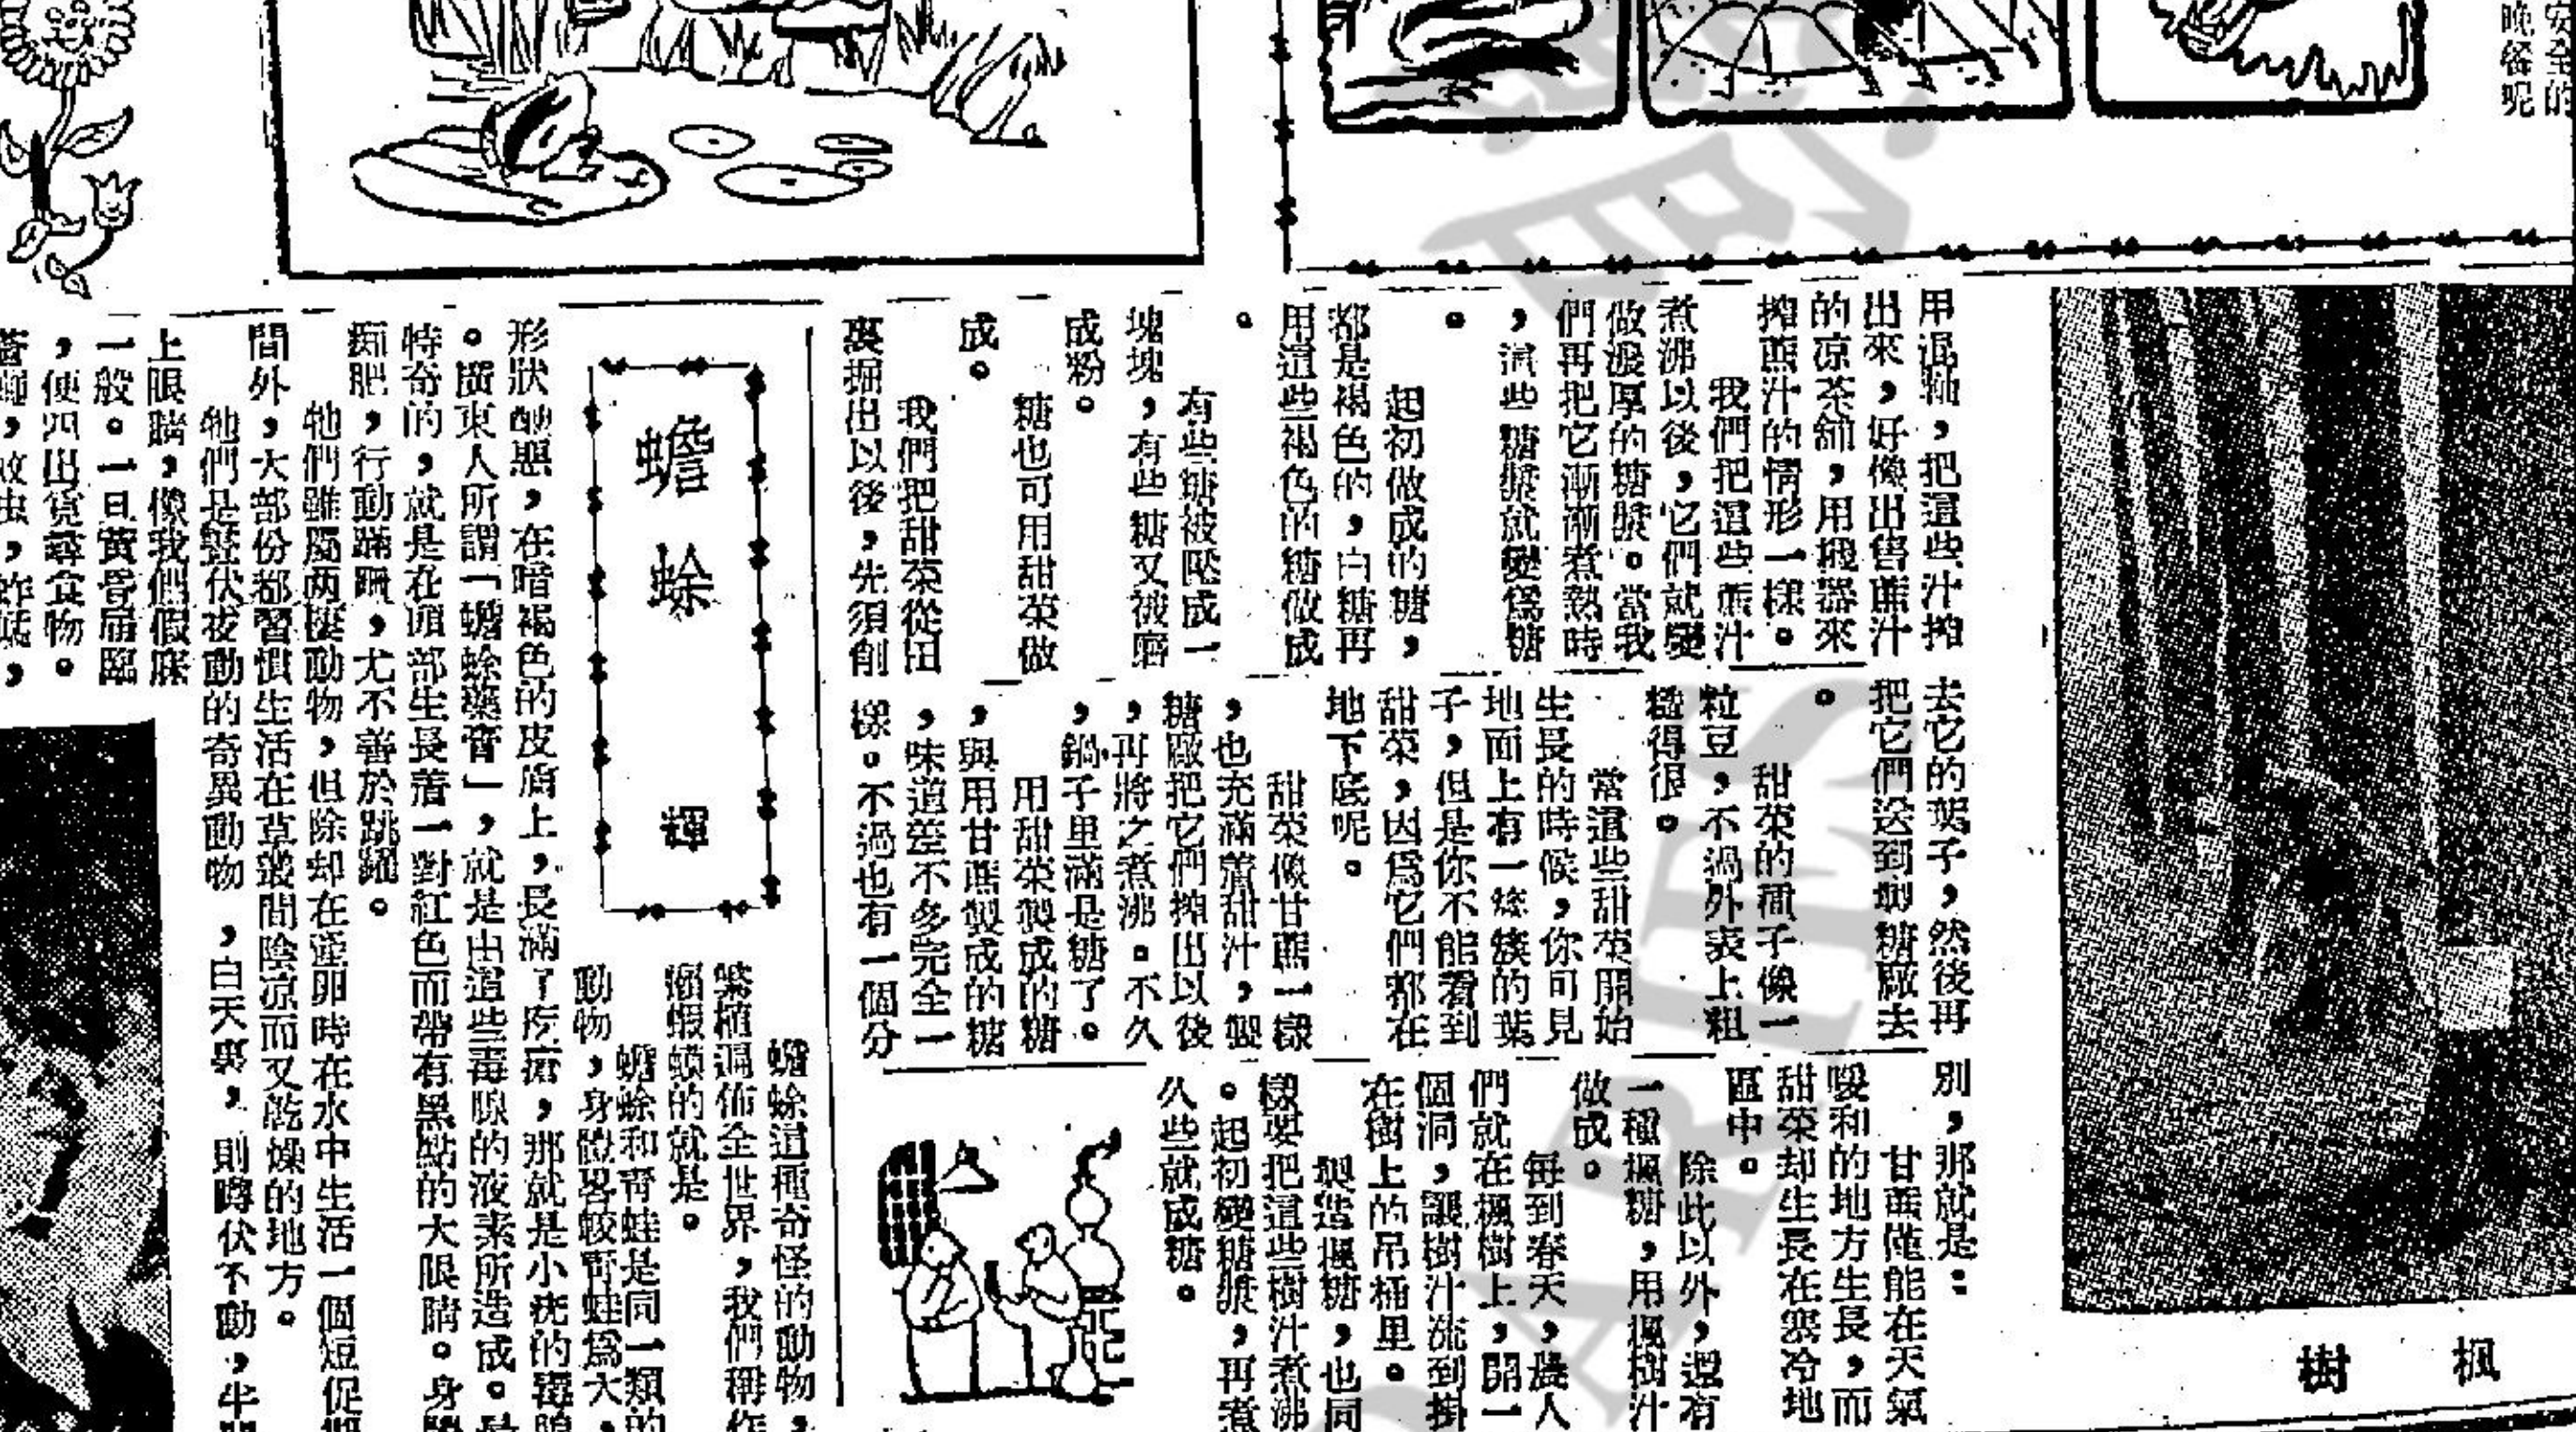 安全的
晚餐呢
用滾軸，把這些汁搾
出來，好像出售蔗汁
的凉茶舖，用機器來
搾蔗汁的情形一樣。
我們把這些蔗汁
煮沸以後，它們就變
做濃厚的糖漿。當我
們再把它漸漸煮熟時
，這些糖漿就變爲糖
。
起初做成的糖，
都是褐色的，白糖再
用這些褐色的糖做成
。
有些糖被壓成一
塊塊，有些糖又被磨
成粉。
糖也可用甜菜做
成。
我們把甜菜從田
裏掘出以後，先須削
去它的葉子，然後再
把它們送到製糖廠去
。
甜菜的種子像一
粒豆，不過外表上粗
糙得很。
當這些甜菜開始
生長的時候，你可見
地面上有一簇簇的葉
子，但是你不能看到
甜菜，因爲它們都在
地下底呢。
甜菜像甘蔗一樣
，也充滿着甜汁，製
糖廠把它們搾出以後
，再將之煮沸。不久
，鍋子里滿是糖了。
用甜菜製成的糖
，與用甘蔗製成的糖
，味道差不多完全一
樣。不過也有一個分
別，那就是：
甘蔗僅能在天氣
暖和的地方生長，而
甜菜却生長在寒冷地
區中。
除此以外，還有
一種楓糖，用楓樹汁
做成。
每到春天，農人
們就在楓樹上，開一
個洞，讓樹汁流到掛
在樹上的吊桶里。
製造楓糖，也同
樣要把這些樹汁煮沸
。起初變糖漿，再煮
久些就成糖。
楓樹
蟾蜍
輝
蟾蜍這種奇怪的動物，
繁植遍佈全世界，我們稱作
癩蝦蟆的就是。
蟾蜍和靑蛙是同一類的
動物，身體畧較靑蛙爲大，
形狀醜惡，在暗褐色的皮膚上，長滿了疙瘩，那就是小疣的毒腺
。廣東人所謂「蟾蜍藥膏」，就是由這些毒腺的液素所造成。
特奇的，就是在頭部生長着一對紅色而帶有黑點的大眼睛。身
痴肥，行動蹣跚，尤不善於跳躍。
牠們雖屬両棲動物，但除却在產卵時在水中生活一個短促
間外，大部份都習慣生活在草叢間陰凉而又乾燥的地方。
牠們是蟄伏夜動的奇異動物，白天裏，則蹲伏不動，半
上眼睛，像我們假寐
一般。一旦黃昏屆臨
，便四出覓尋食物。
蒼蠅，蚊虫，蚱蜢，